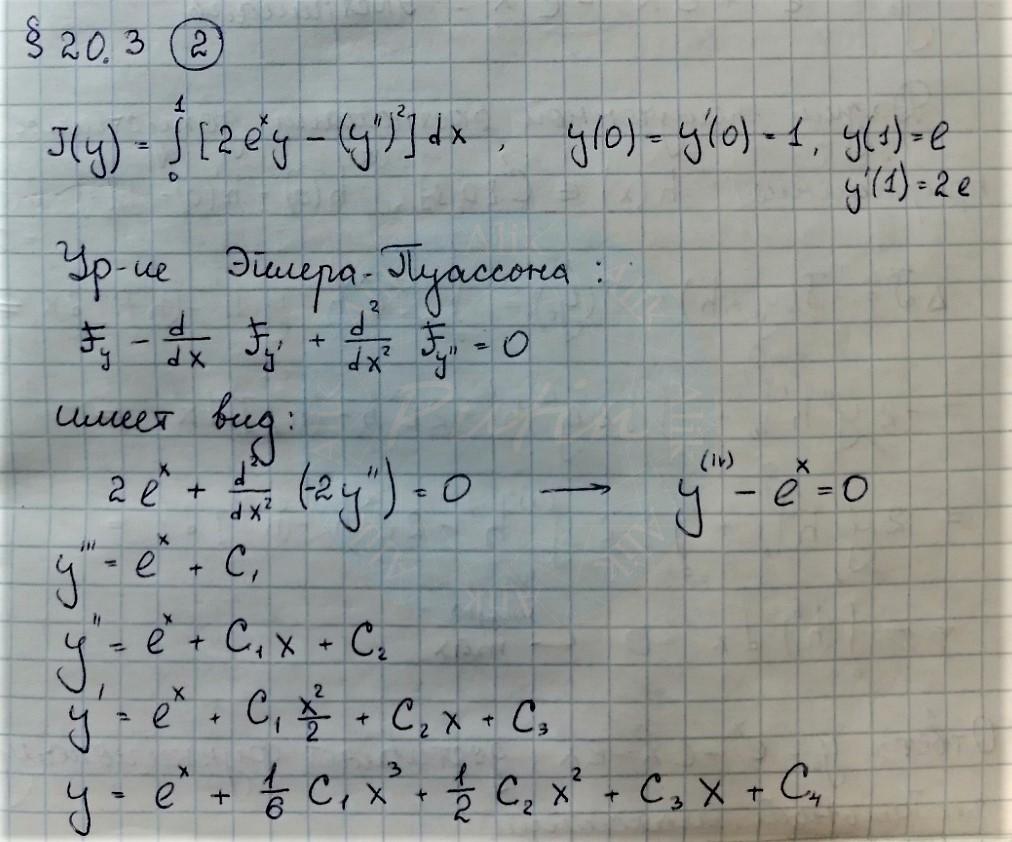 § 20.3 ②
J(y) = ∫₀¹ [2eˣy − (y'')²] dx , y(0) = y'(0) = 1, y(1) = e
y'(1) = 2e
Ур-ие Эйлера-Пуассона:
F_y − d/dx F_y' + d²/dx² F_y'' = 0
имеет вид:
2eˣ + d²/dx² (-2y'') = 0 → y⁽ⁱᵛ⁾ − eˣ = 0
y''' = eˣ + C₁
y'' = eˣ + C₁x + C₂
y' = eˣ + C₁ x²/2 + C₂x + C₃
y = eˣ + 1/6 C₁x³ + 1/2 C₂x² + C₃x + C₄